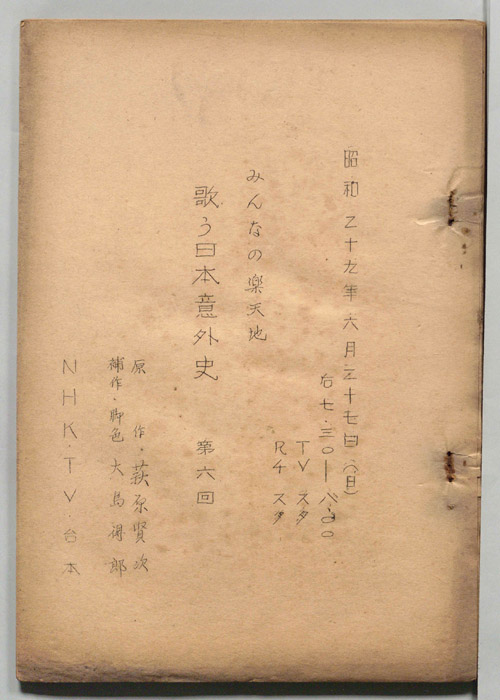 昭和二十九年六月二十七日(日)
后七・三〇―八・〇〇
TV スタ
R4 スタ
みんなの楽天地
歌う日本意外史 第六回
原 作・萩原賢次
補作・脚色 大島得郎
NHK・TV台本